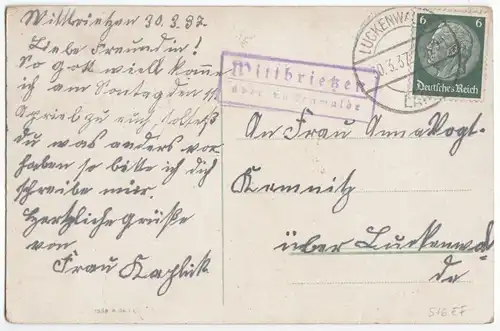 Wittbrietzen 30.3.37.
Liebe Freundin!
So Gott will komme
ich am Sontag den 11
Aprielzu euch, soltest
du was anders vor
haben so bitte ich dich
schreibe mir.
Hertzliche Grüße
von
Frau Kaplick
Wittbrietzen
über Luckenwalde
LUCKENWA
30.3.37
6 6
Deutsches Reich
An Frau Anna Vogt.
Kemnitz
über Luckenwal
de
516 EF